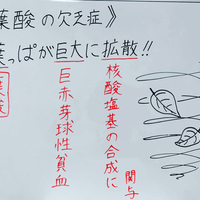 葉酸の欠乏症》
葉っぱが巨大に拡散!!
核酸塩基の合成に
関与
巨赤芽球性貧血